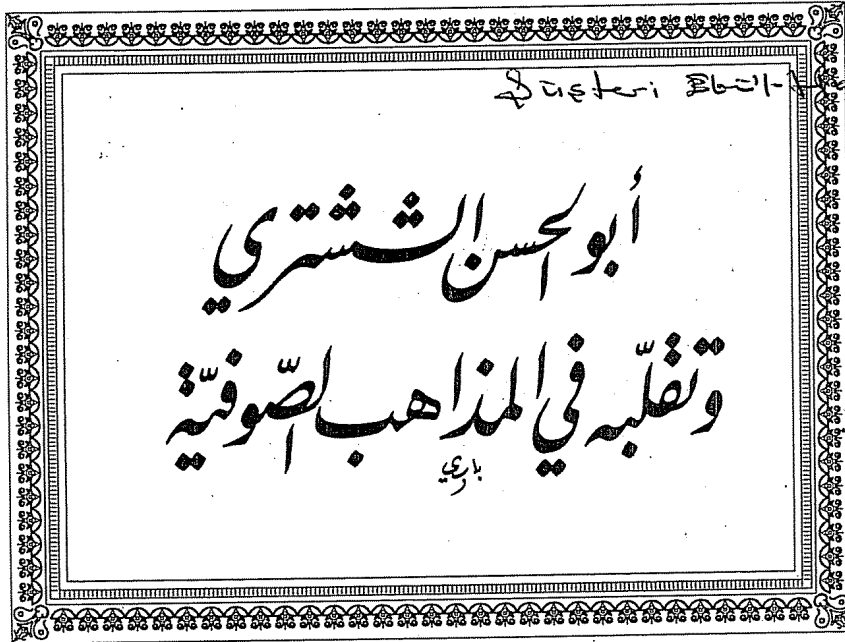 Şüşteri Ebü'l-
أبو الحسن الششتري
وتقلّبه في المذاهب الصّوفيّة